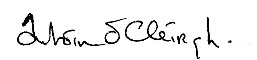 Antóin Ó Cléirigh.